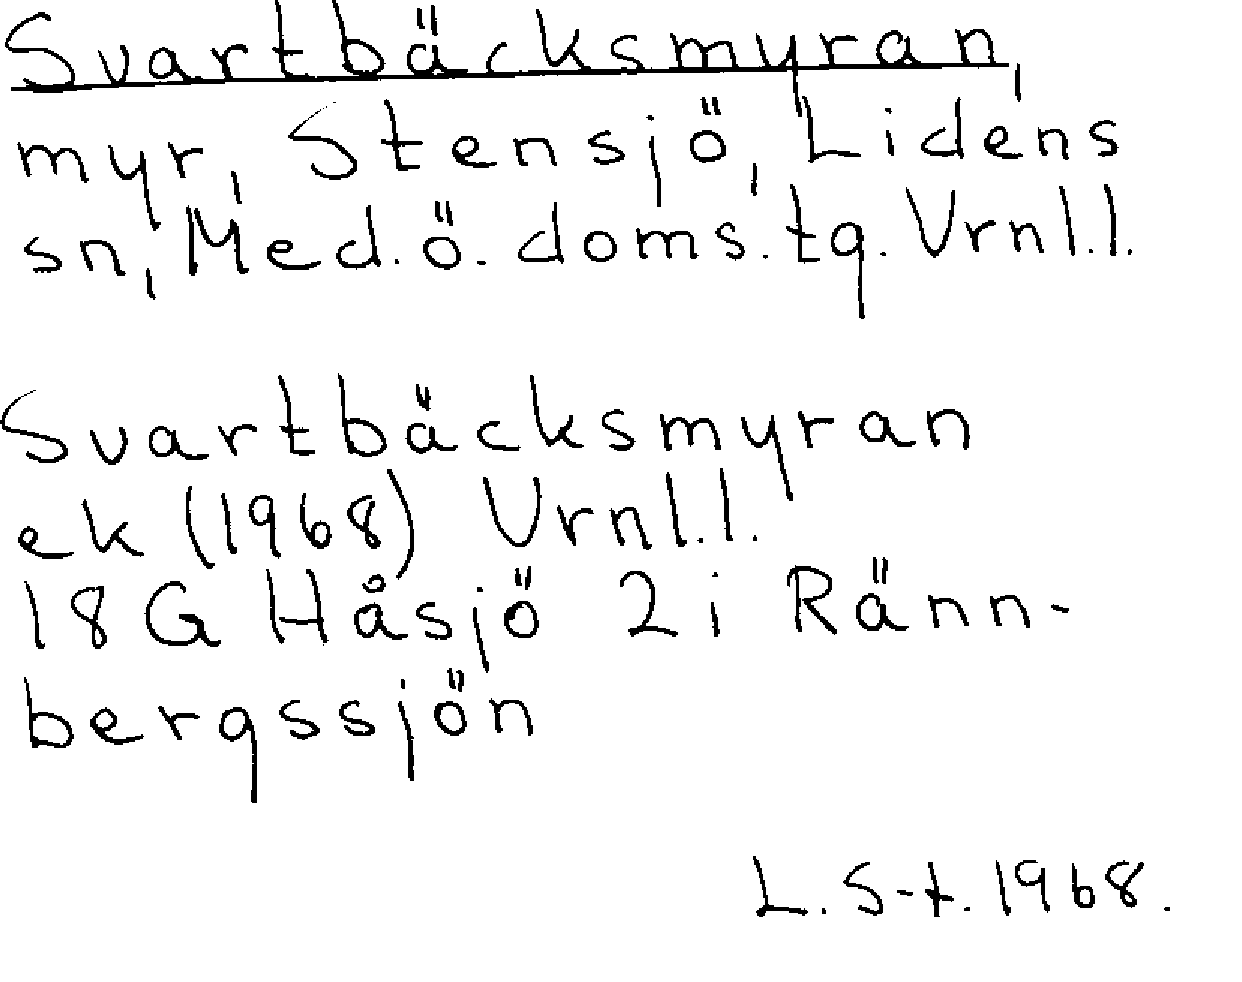 Svartbäcksmyran,
myr, Stensjö, Lidens
sn, Med. ö. doms. tg. Vrnl.l.
Svartbäcksmyran
ek (1968) Vrnl.l.
18 G Håsjö 2 i Ränn-
bergssjön
L. S-t. 1968.